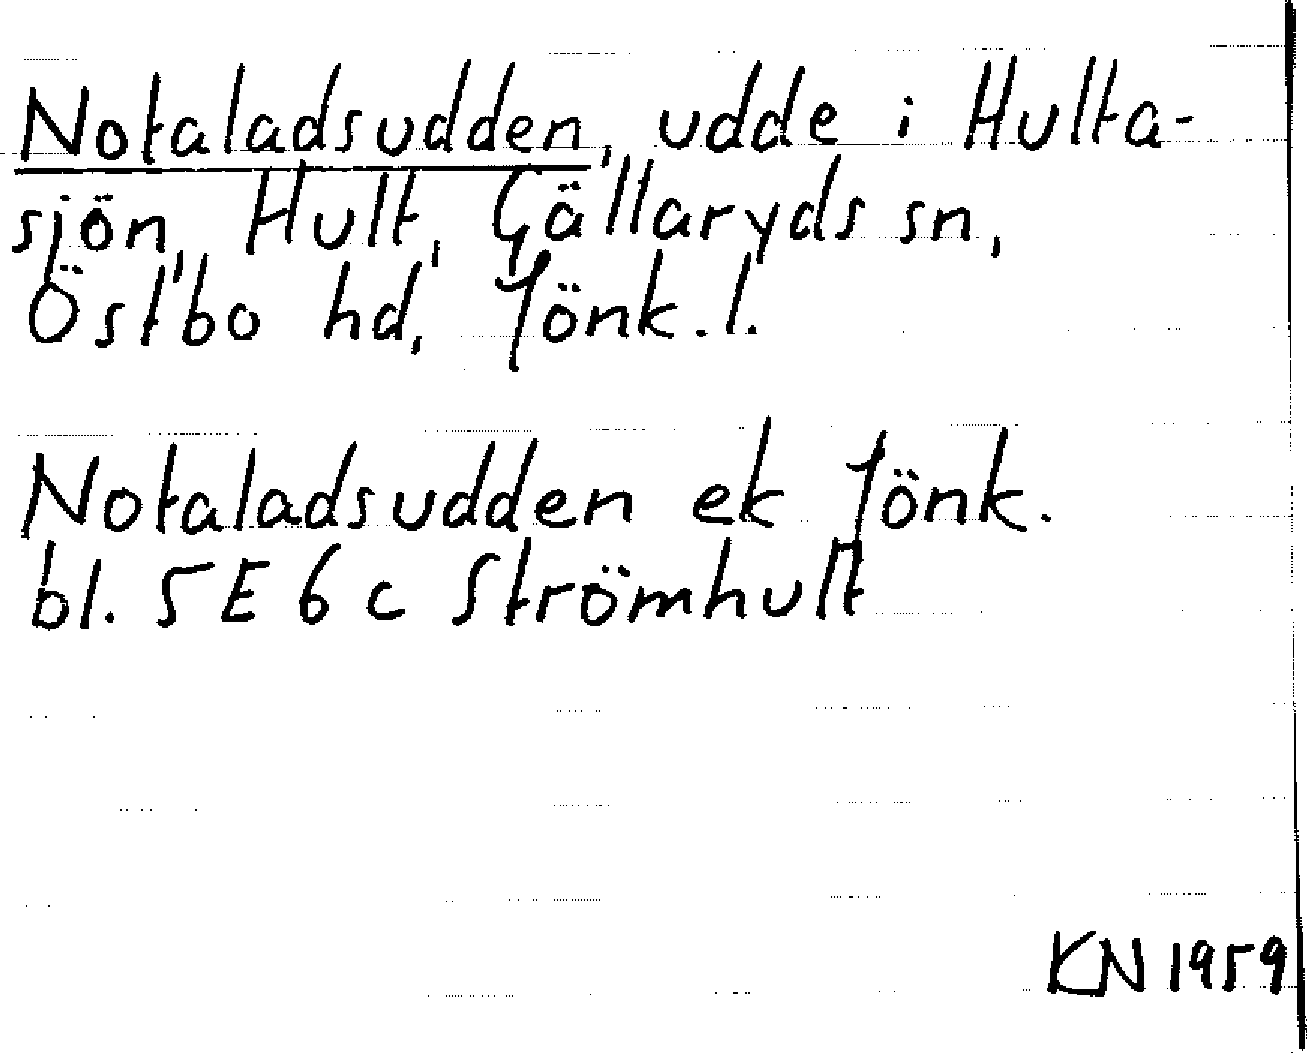 Notaladsudden, udde i Hulta-
sjön, Hult, Gällaryds sn,
Östbo hd, Jönk. l.
Notaladsudden ek Jönk.
bl. 5E 6c Strömhult
KN 1959